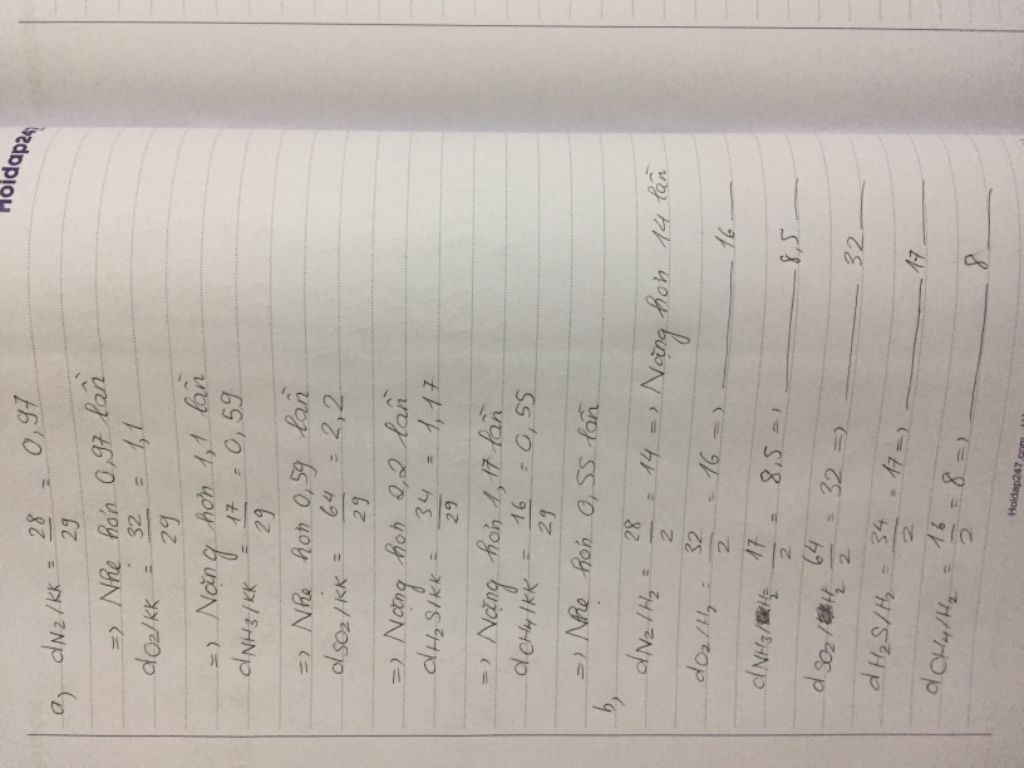 Hoidap247
a, dN₂/KK = 28/29 = 0,97
=> Nhẹ hơn 0,97 lần
dO₂/KK = 32/29 = 1,1
=> Nặng hơn 1,1 lần
dNH₃/KK = 17/29 = 0,59
=> Nhẹ hơn 0,59 lần
dSO₂/KK = 64/29 = 2,2
=> Nặng hơn 2,2 lần
dH₂S/KK = 34/29 = 1,17
=> Nặng hơn 1,17 lần
dCH₄/KK = 16/29 = 0,55
=> Nhẹ hơn 0,55 lần
b,
dN₂/H₂ = 28/2 = 14 => Nặng hơn 14 lần
dO₂/H₂ = 32/2 = 16 => ——— 16 —
dNH₃/H₂ = 17/2 = 8,5 => ——— 8,5 —
dSO₂/H₂ = 64/2 = 32 => ——— 32 —
dH₂S/H₂ = 34/2 = 17 => ——— 17 —
dCH₄/H₂ = 16/2 = 8 => ——— 8 —
Hoidap247.com